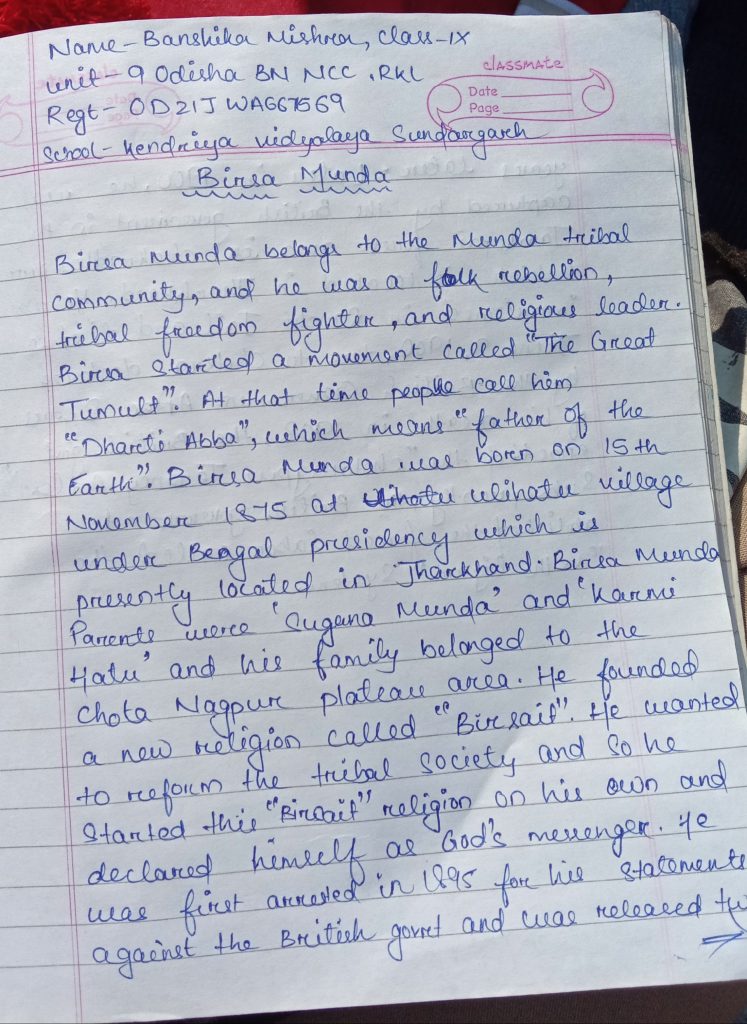 Name - Banshika Mishra, class-IX
unit - 9 Odisha BN NCC, RKL
classmate
Date
Page
Regt - OD21JWA667569
School - Kendriya vidyalaya Sundargarh
Birsa Munda
Birsa Munda belongs to the Munda tribal
community, and he was a folk rebellion,
tribal freedom fighter, and religious leader.
Birsa started a movement called "The Great
Tumult". At that time people call him
"Dharti Abba", which means "father of the
Earth". Birsa Munda was born on 15th
November 1875 at Ulihatu ulihatu village
under Bengal presidency which is
presently located in Jharkhand. Birsa Munda
Parents were 'Sugana Munda' and 'Karmi
Hatu' and his family belonged to the
Chota Nagpur plateau area. He founded
a new religion called "Birsait". He wanted
to reform the tribal society and so he
started this "Birsait" religion on his own and
declared himself as God's messenger. He
was first arrested in 1895 for his statements
against the British govret and was released tw